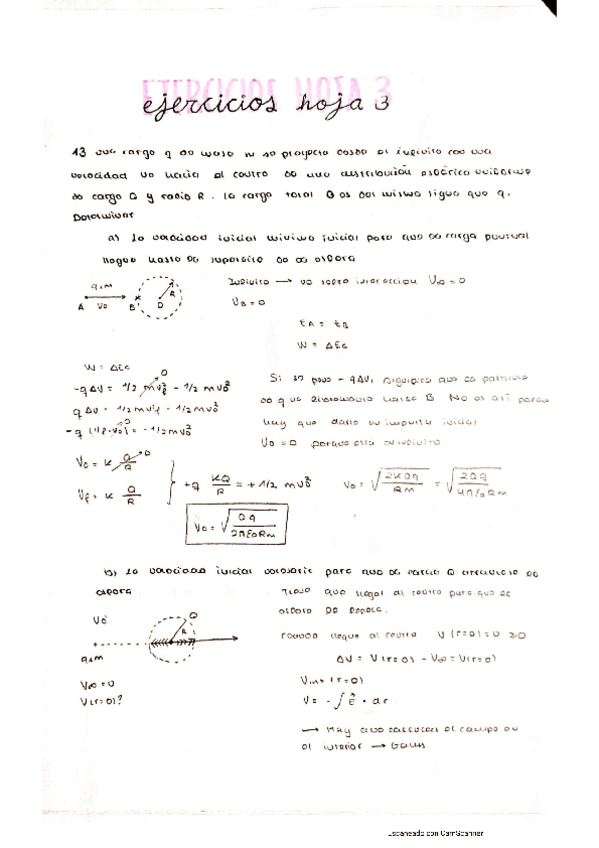 EJERCICIOS HOJA 3
ejercicios hoja 3
13 una carga q de masa m se proyecta desde el infinito con una
velocidad v0 hacia el centro de una distribución esférica uniforme
de carga Q y radio R. La carga total Q es del mismo signo que q.
Determinar
a) La velocidad inicial mínima inicial para que la carga puntual
llegue hasta la superficie de la esfera
q,m
A v0 B D R
Infinito → no sobre interaccion V∞ = 0
VB = 0
EA = EB
W = ΔEc
W = ΔEc
-qΔV = 1/2 mvf² - 1/2 mv0²
qΔV = 1/2mvf² - 1/2mv0²
-q (Vf-V0) = -1/2mv0²
Si se pone -qΔV, significa que la partícula
hasta B. No es así porque
hay que darle un impulso inicial
V0 = 0 porque está en infinito
V0 = K Q/R → 0
Vf = K Q/R
+q KQ/R = +1/2 mv0²
v0 = √(2KQq/Rm) = √(2Qq/4πε0Rm)
v0 = √(Qq/2πε0Rm)
b) La velocidad inicial necesaria para que la carga Q atraviese la
esfera. Tiene que llegar al centro para que la
esfera la repele.
v0 Q
R
q,m
cuando llegue al centro V(r=0) = 0
ΔV = V(r=0) - V∞ = V(r=0)
V∞ = 0
V(r=0)?
Vint (r=0)
V = -∫ E · dr
→ Hay que calcular el campo en
el interior → Gauss
Escaneado con CamScanner